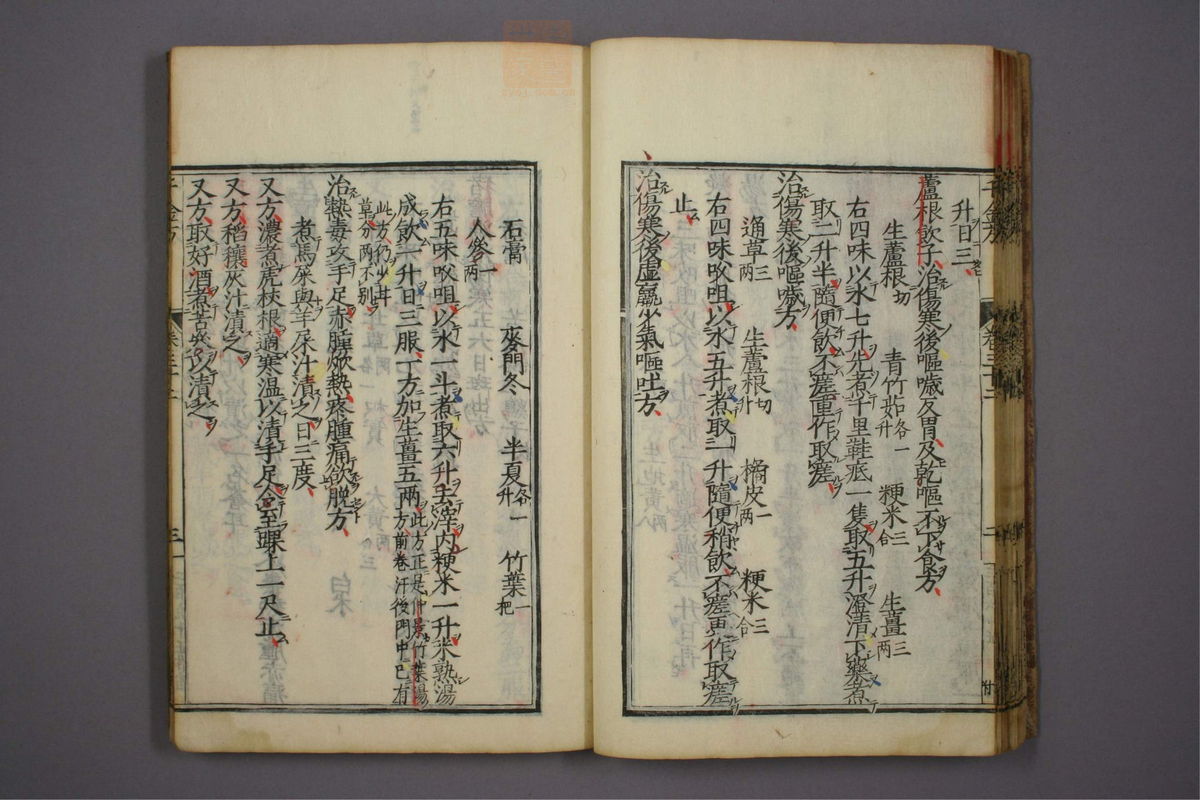 升日三
蘆根飲子治傷寒後嘔噦反胃及乾嘔不下食方
生蘆根切 青竹茹各一升 粳米三合 生薑三两
右四味以水七升先煮千里鞋底一隻取五升澄清下藥煮
取二升半隨便飲不瘥重作取瘥
治傷寒後嘔噦方
通草三两 生蘆根切升 橘皮一两 粳米三合
右四味㕮咀以水五升煮取二升隨便稍飲不瘥更作取瘥
止
治傷寒後虛羸少氣嘔吐方
石膏 麥門冬 半夏各一升 竹葉一把
人參一两
右五味㕮咀以水一斗煮取六升去滓内粳米一升米熟湯
成飲一升日三服一方加生薑五两此方正是仲景竹葉湯方前卷汗後門中已有
此方仍少甘草分两不别
治熱毒攻手足赤腫焮熱疼腫痛欲脱方
煮馬屎與羊屎汁漬之日三度
又方濃煮虎杖根適寒温以漬手足令至踝上一尺止
又方稻穰灰汁漬之
又方取好酒煮苦參以漬之